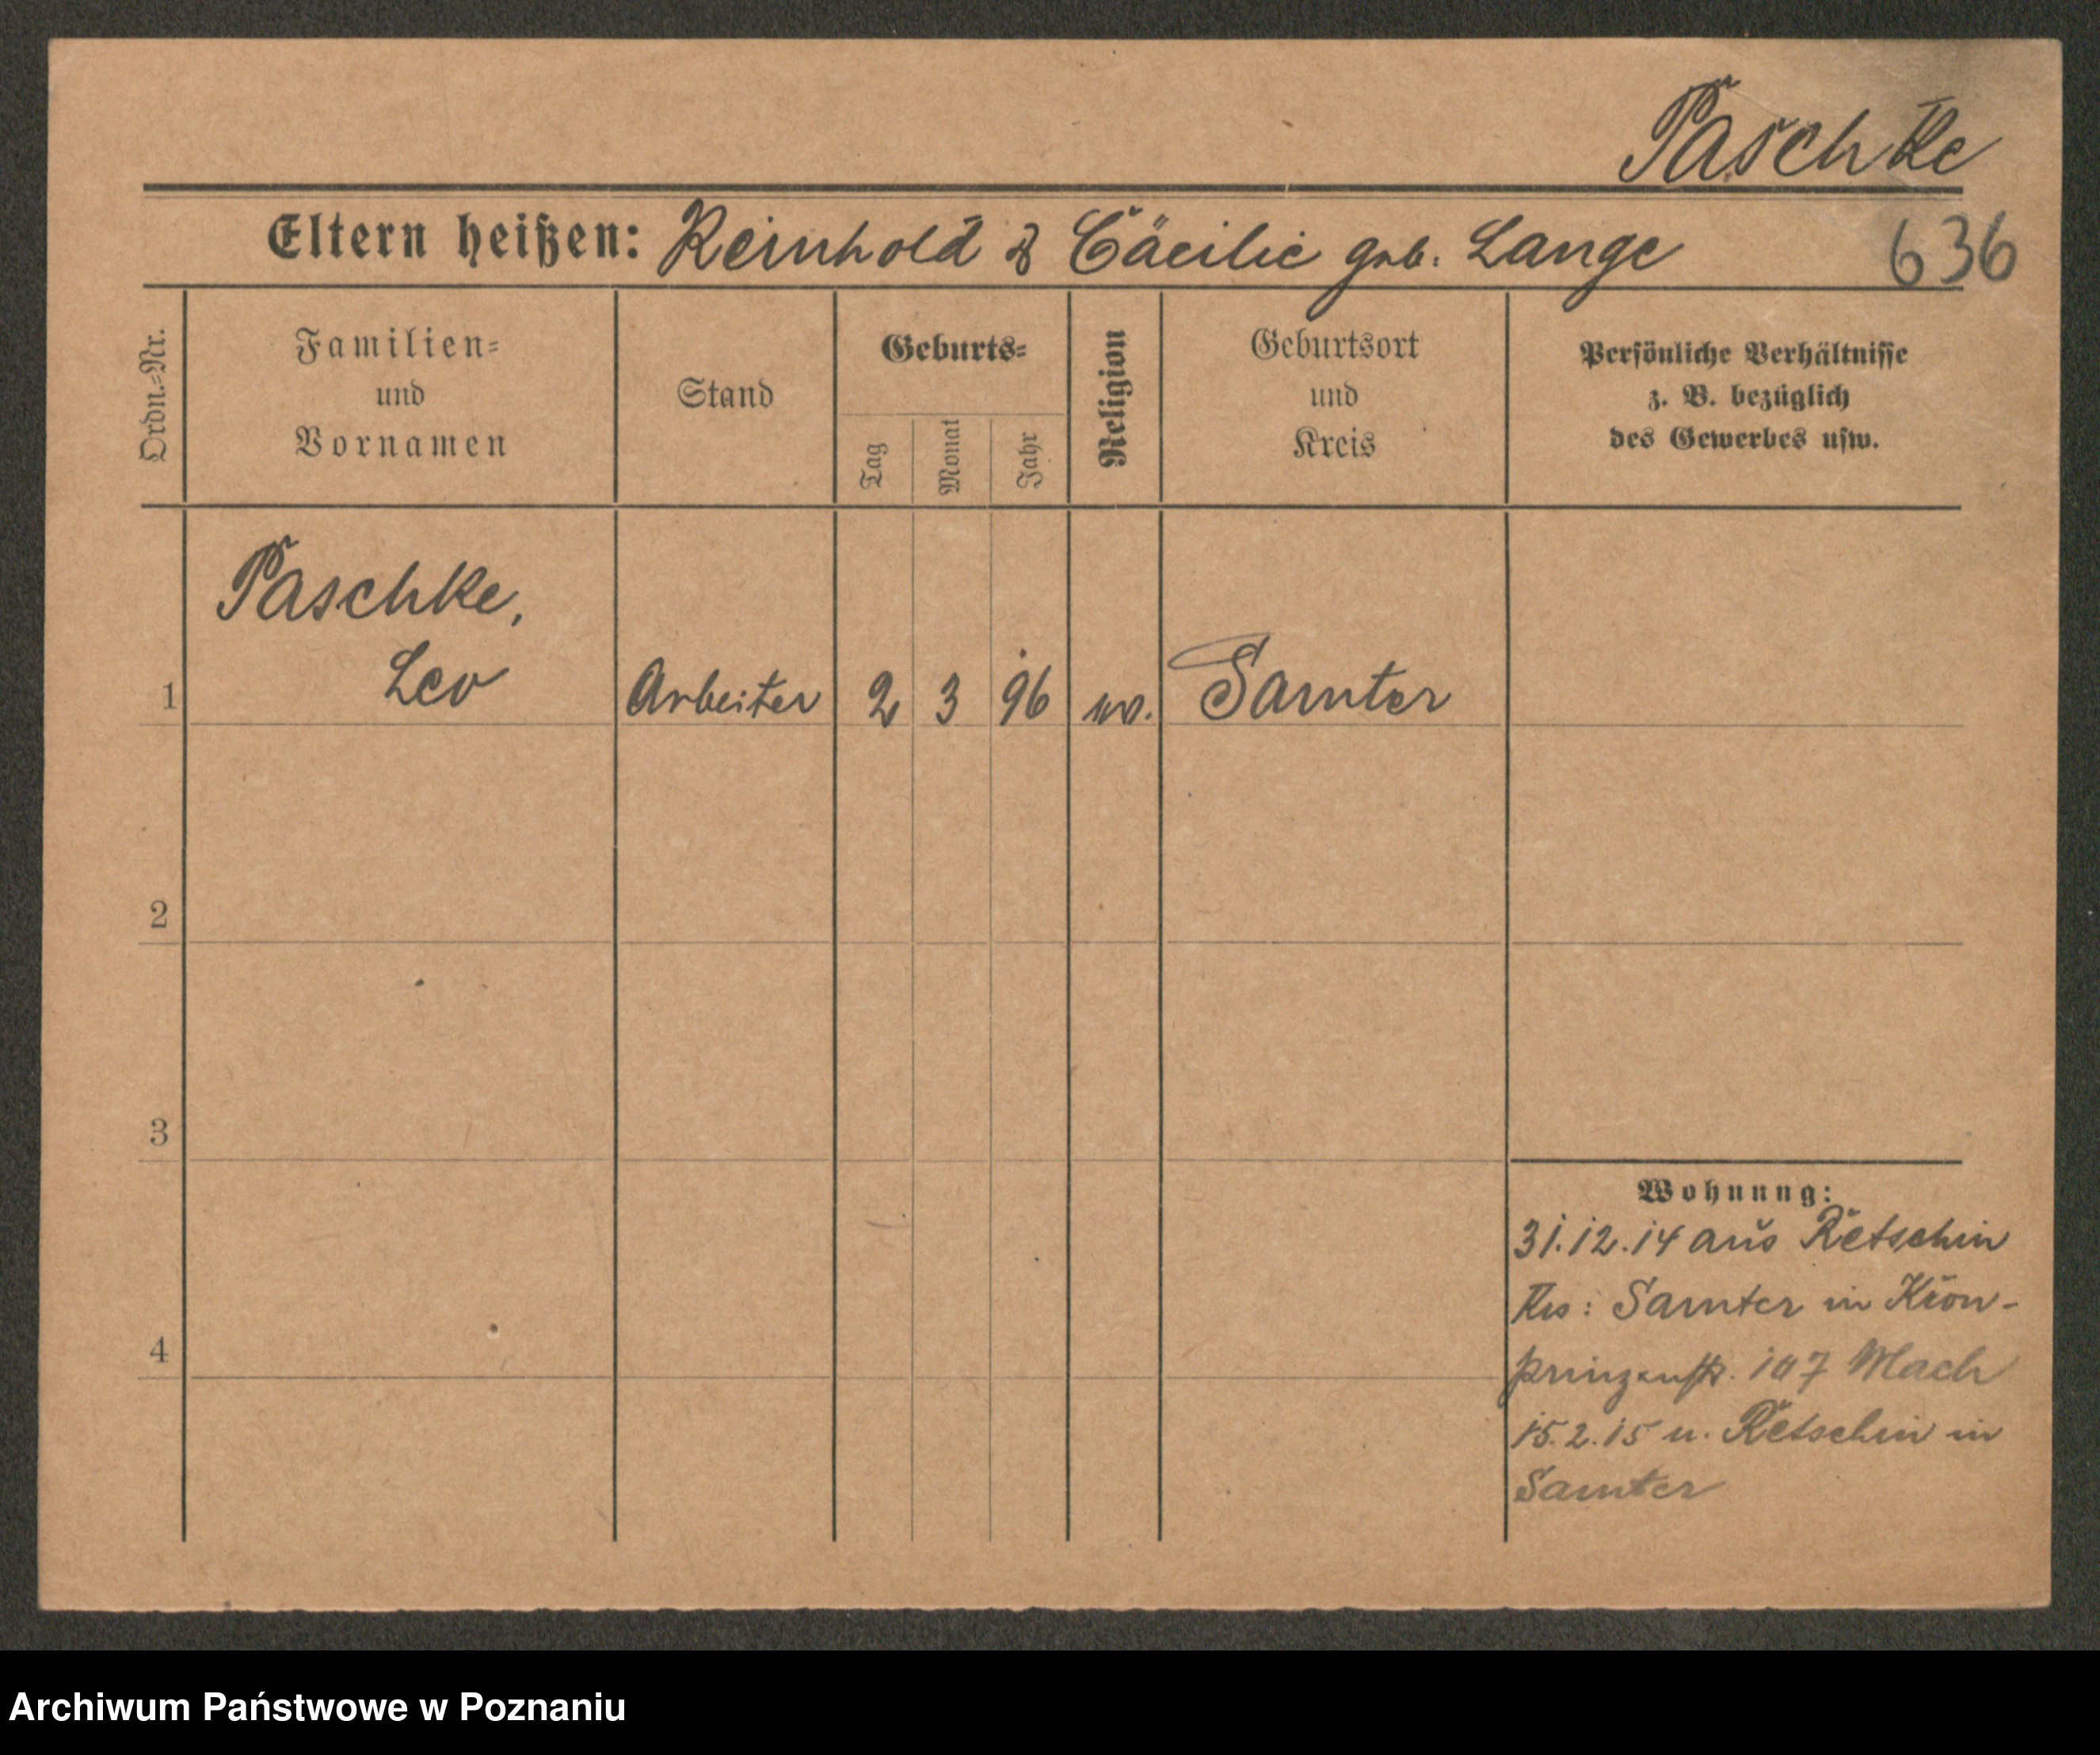 Paschke
Eltern heißen: Reinhold & Cäcilie geb. Lange 636
Ordn.-Nr.
Familien-
und
Vornamen
Stand
Geburts-
Tag
Monat
Jahr
Religion
Geburtsort
und
Kreis
Persönliche Verhältnisse
z. B. bezüglich
des Gewerbes usw.
Paschke,
1 Leo Arbeiter 2 3 96 ev. Samter
2
3
4
Wohnung:
31.12.14 aus Retschin
Krs: Samter in Kron-
prinzenstr. 107 Mach
15.2.15 n. Retschin in
Samter
Archiwum Państwowe w Poznaniu